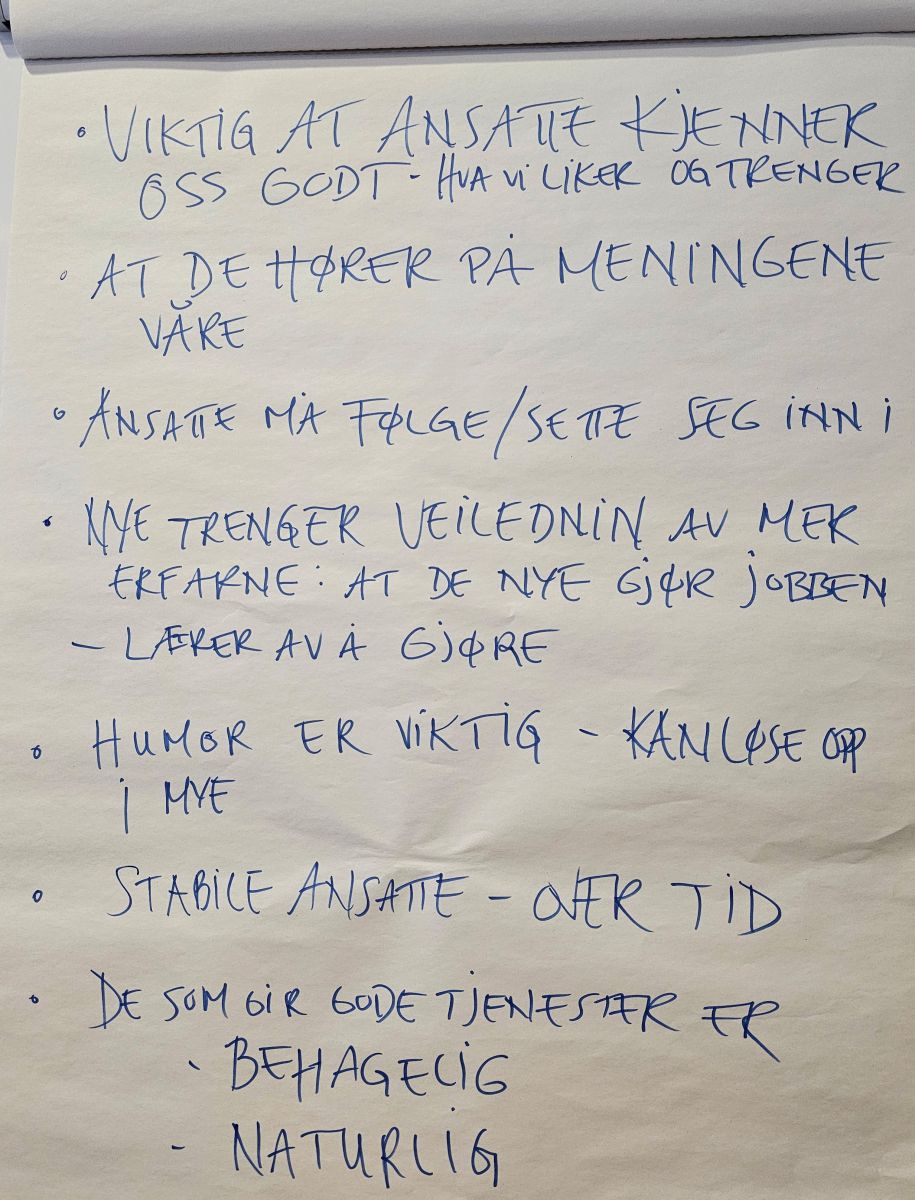 • VIKTIG AT ANSATTE KJENNER
OSS GODT - HVA VI LIKER OG TRENGER
• AT DE HØRER PÅ MENINGENE
VÅRE
• ANSATTE MÅ FØLGE/SETTE SEG INN I
• NYE TRENGER VEILEDNIN AV MER
ERFARNE: AT DE NYE GJØR JOBBEN
- LÆRER AV Å GJØRE
• HUMOR ER VIKTIG - KAN LØSE OPP
I MYE
• STABILE ANSATTE - OVER TID
• DE SOM GIR GODE TJENESTER ER
- BEHAGELIG
- NATURLIG